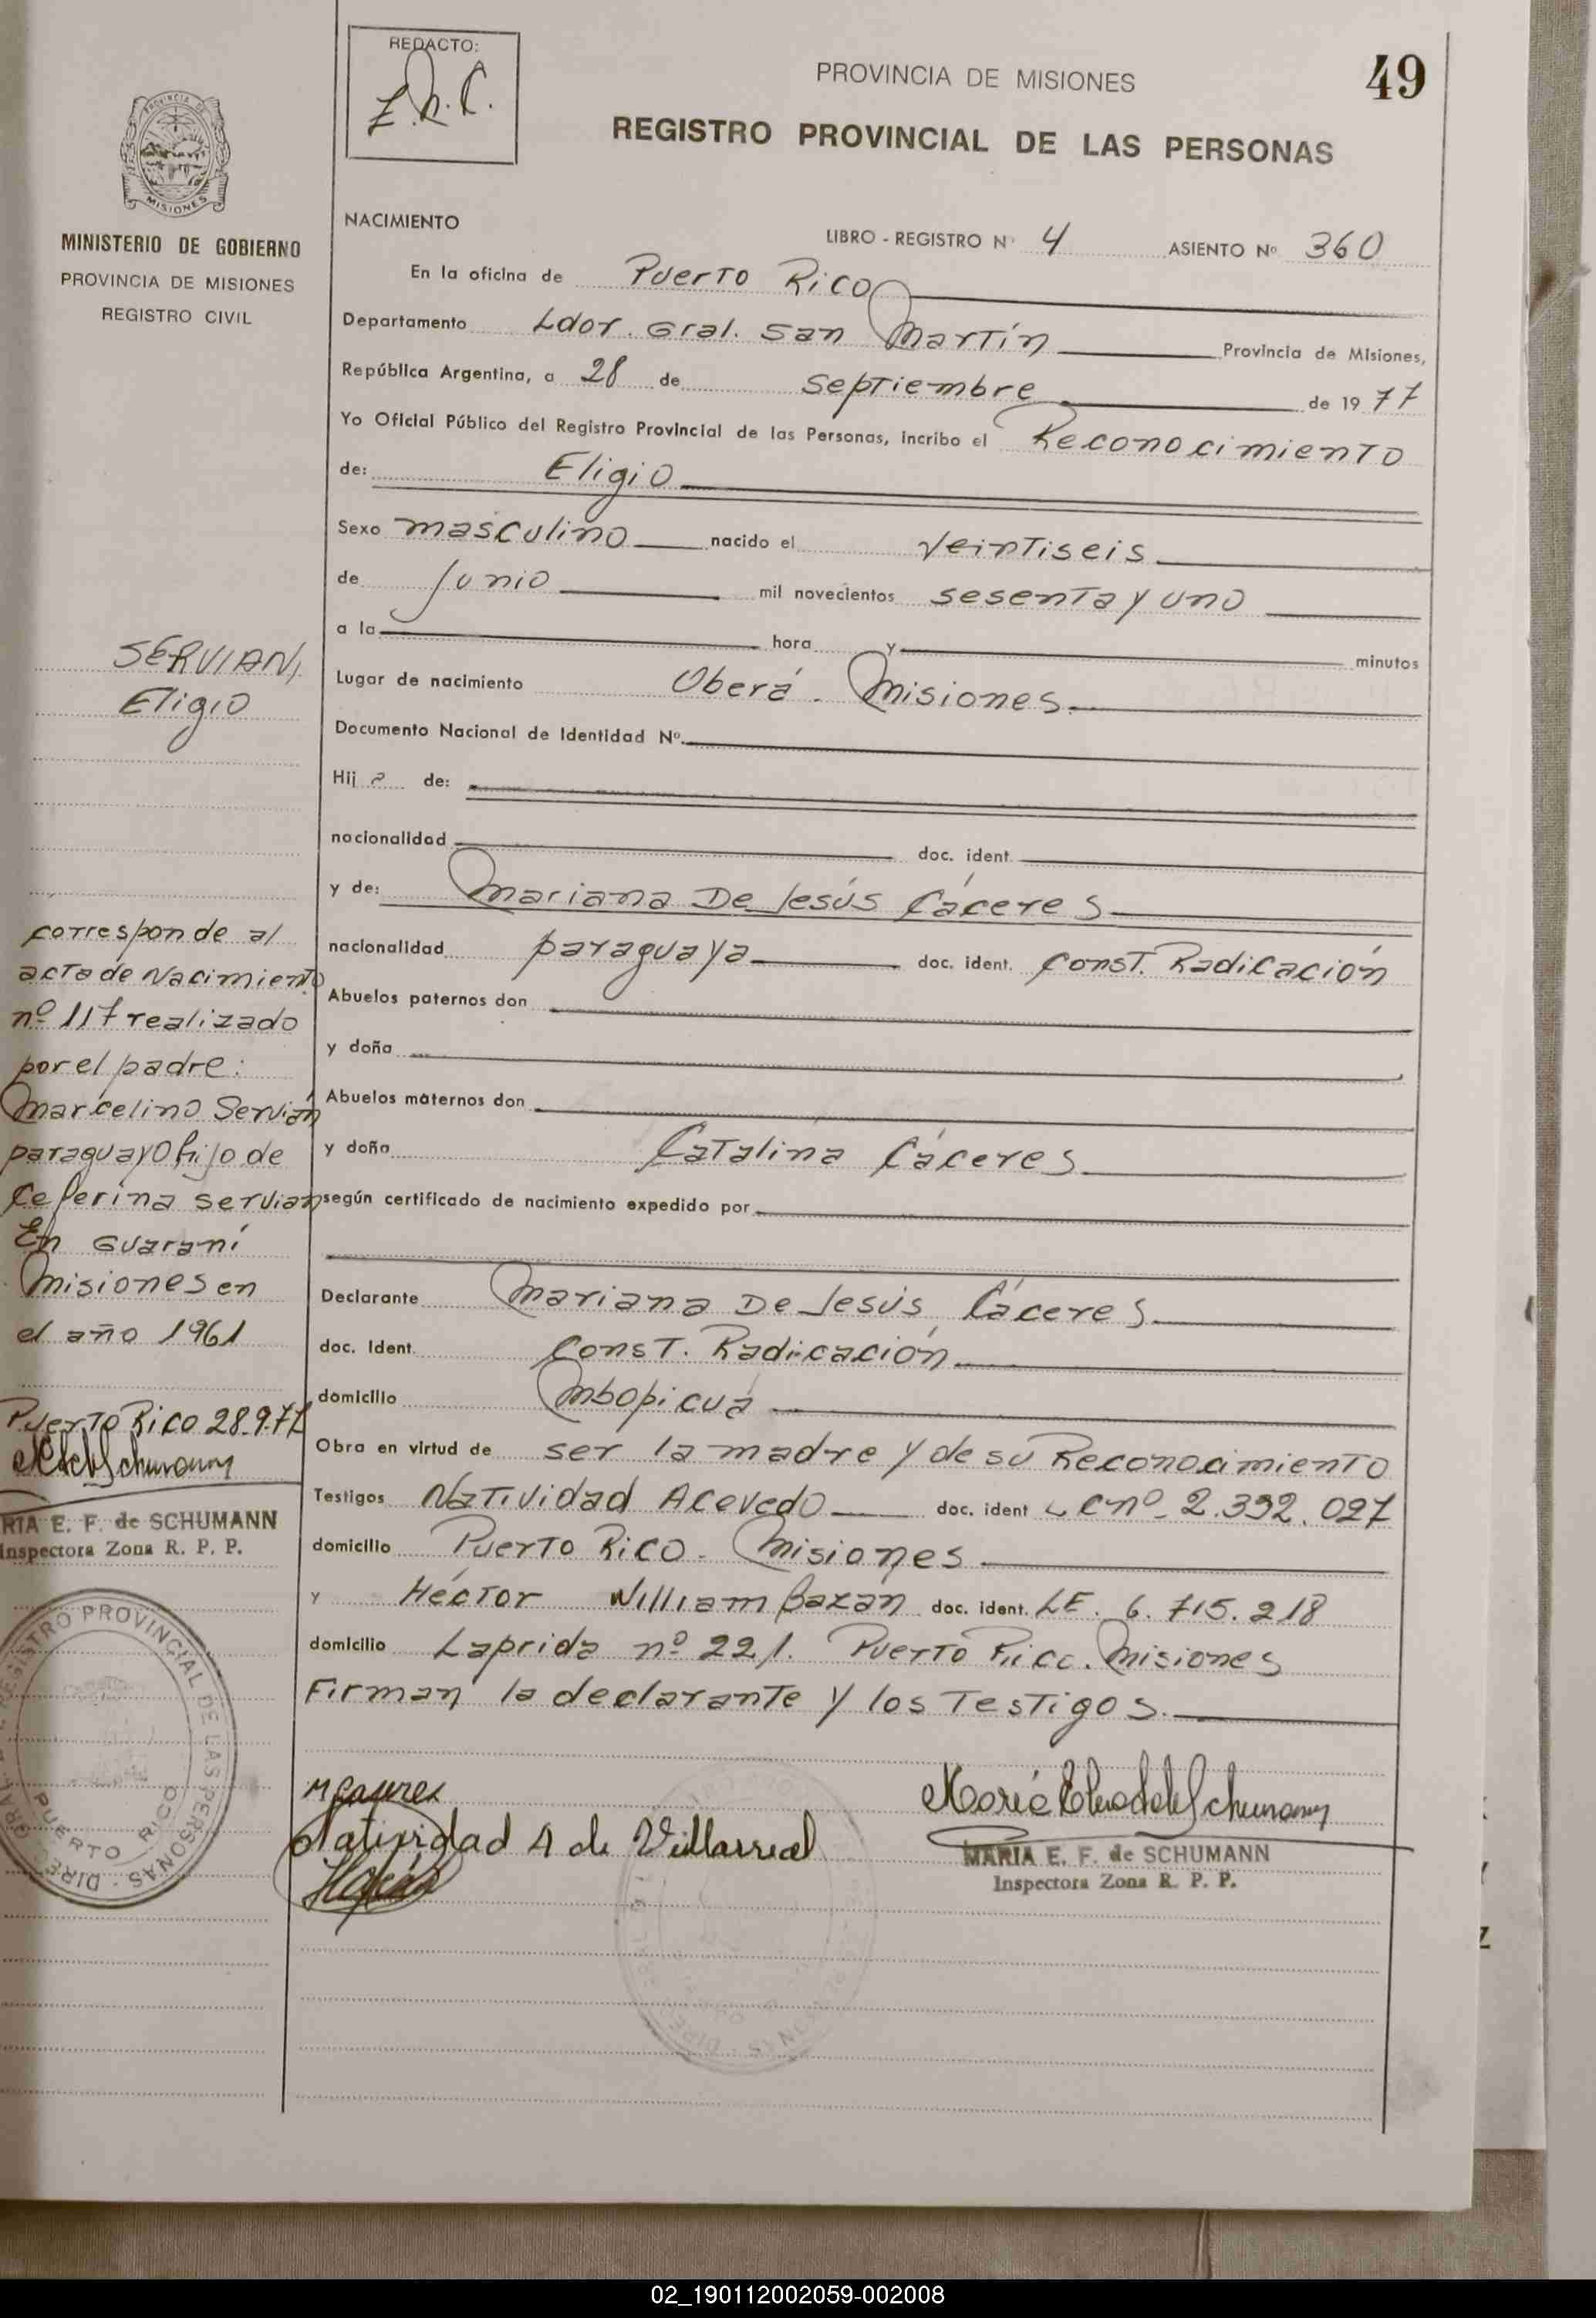 REDACTO:
PROVINCIA DE MISIONES
49
REGISTRO PROVINCIAL DE LAS PERSONAS
PROVINCIA DE
MISIONES
MINISTERIO DE GOBIERNO
PROVINCIA DE MISIONES
REGISTRO CIVIL
NACIMIENTO
LIBRO - REGISTRO Nº 4 ASIENTO Nº 360
En la oficina de Puerto Rico
Departamento Ldor. Gral. San Martín Provincia de Misiones,
República Argentina, a 28 de septiembre de 1977
Yo Oficial Público del Registro Provincial de las Personas, incribo el Reconocimiento
de: Eligio
Sexo masculino nacido el veintiseis
de Junio mil novecientos sesenta y uno
a la hora y minutos
Lugar de nacimiento Oberá - Misiones.
Documento Nacional de Identidad Nº.
Hij o de:
nacionalidad doc. ident.
y de: Mariana De Jesús Cáceres
nacionalidad paraguaya doc. ident. Const. Radicación
Abuelos paternos don
y doña
Abuelos maternos don
y doña Catalina Cáceres
según certificado de nacimiento expedido por
Declarante Mariana De Jesús Cáceres
doc. Ident. Const. Radicación
domicilio Mbopicuá
Obra en virtud de ser la madre y de su Reconocimiento
Testigos Natividad Acevedo doc. ident LC nº 2.392.027
domicilio Puerto Rico - Misiones
y Héctor William Bazán doc. ident. LE. 6.715.218
domicilio Laprida nº 221. Puerto Rico. Misiones
Firman la declarante y los testigos.
MCaceres
Natividad A de Villarreal
MARIA E. F. de SCHUMANN
Inspectora Zona R. P. P.
SERVIAN,
Eligio
corresponde al
acta de Nacimiento
nº 117 realizado
por el padre:
Marcelino Servián
paraguayo hijo de
Ceferina Servian
En Guaraní
Misiones en
el año 1961
Puerto Rico 28.9.77
RIA E. F. de SCHUMANN
Inspectora Zona R. P. P.
REGISTRO PROVINCIAL DE LAS PERSONAS
PUERTO RICO
02_190112002059-002008